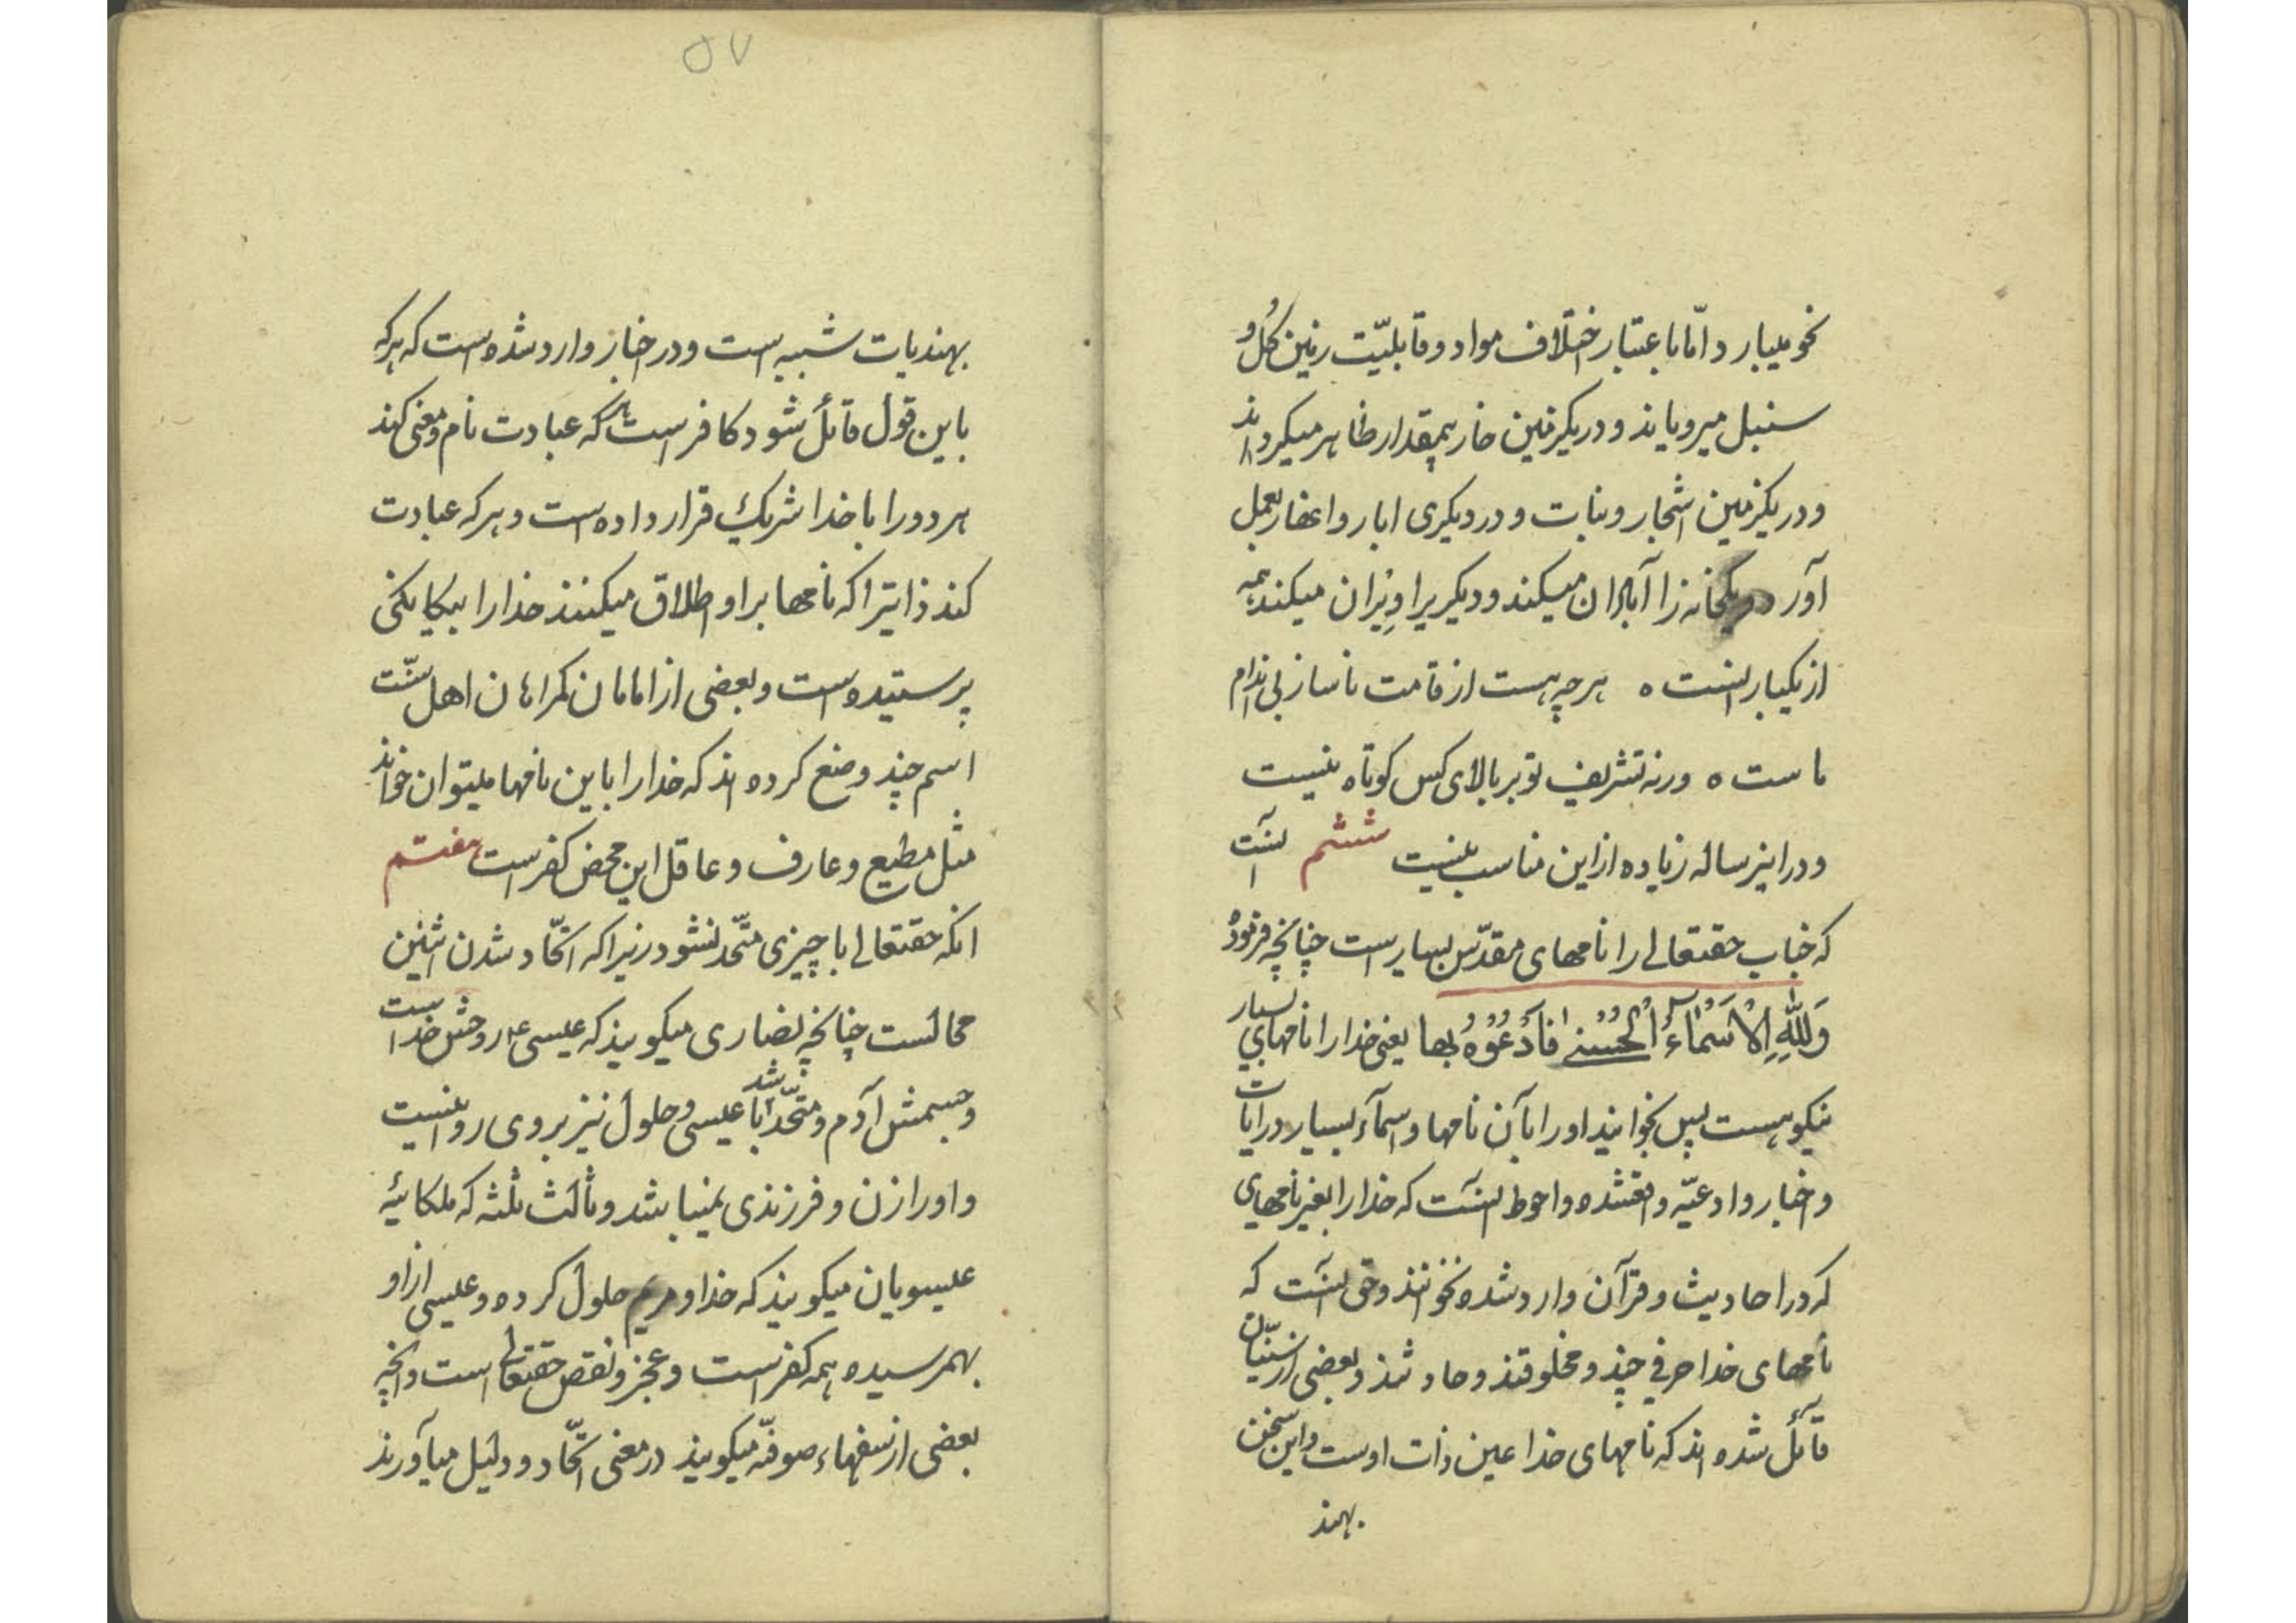 نحو میبارد امّا باعتبار اختلاف مواد و قابلیّت زمین کل و
سنبل میرویاند و در یکزمین خار بیمقدار ظاهر میکرداند
و در یکزمین اشجار و نبات و در دیکری ابار و اعفار بعمل
آورد و یکخانه را آبادان میکند و دیکریرا ویران میکند همه
از یکبار انست ه هرچه هست از قامت ناساز بی اندام
ماست ه ورنه تشریف تو بر بالای کس کوتاه نیست
و در اینرساله زیاده از این مناسب نیست ششم انست
که جناب حقتعالی را نامهای مقدّس بسیار است چنانچه فرموده
وَلِلّٰهِ الْاَسْمَاءُ الْحُسْنٰی فَادْعُوْهُ بها یعنی خدا را نامهای بسیار
نیکو هست پس بخوانید او را بآن نامها و اسماء بسیار در ایات
و اخبار و ادعیّه واقعشده و احوط انست که خدا را بغیر نامهای
که در احادیث و قرآن وارد شده نخوانند و حق انست که
نامهای خدا حرفی چند و مخلوقند و حادثند و بعضی از سنّیان
قائل شده اند که نامهای خدا عین ذات اوست و این سخن
بهند
۵۷
بهندیات شبیه است و در اخبار وارد شده است که هرکه
باین قول قائل شود کافر است هر که عبادت نام و معنی کند
هر دو را با خدا شریک قرار داده است و هرکه عبادت
کند ذاتیرا که نامها بر او اطلاق میکنند خدا را بیکانکی
پرستیده است و بعضی از امامان کمراهان اهل سنّت
اسم چند وضع کرده اند که خدا را باین نامها میتوان خواند
مثل مطیع و عارف و عاقل این محض کفر است هفتم
انکه حقتعالی با چیزی متّحد نشود زیرا که اتّحاد شدن اثنین
محالست چنانچه نصاری میکویند که عیسی ع روحش خداست
و جسمش آدم و متّحد شد با عیسی و حلول نیز بر وی روا نیست
و او را زن و فرزندی نمیباشد و ثالث ثلثه که ملکائیه
عیسویان میکویند که خدا و مریم حلول کرده و عیسی از او
بهمرسیده همه کفر است و عجز و نقص حقتعالی است و انچه
بعضی از سفهاء صوفیّه میکویند در معنی اتّحاد و دلیل میآورند